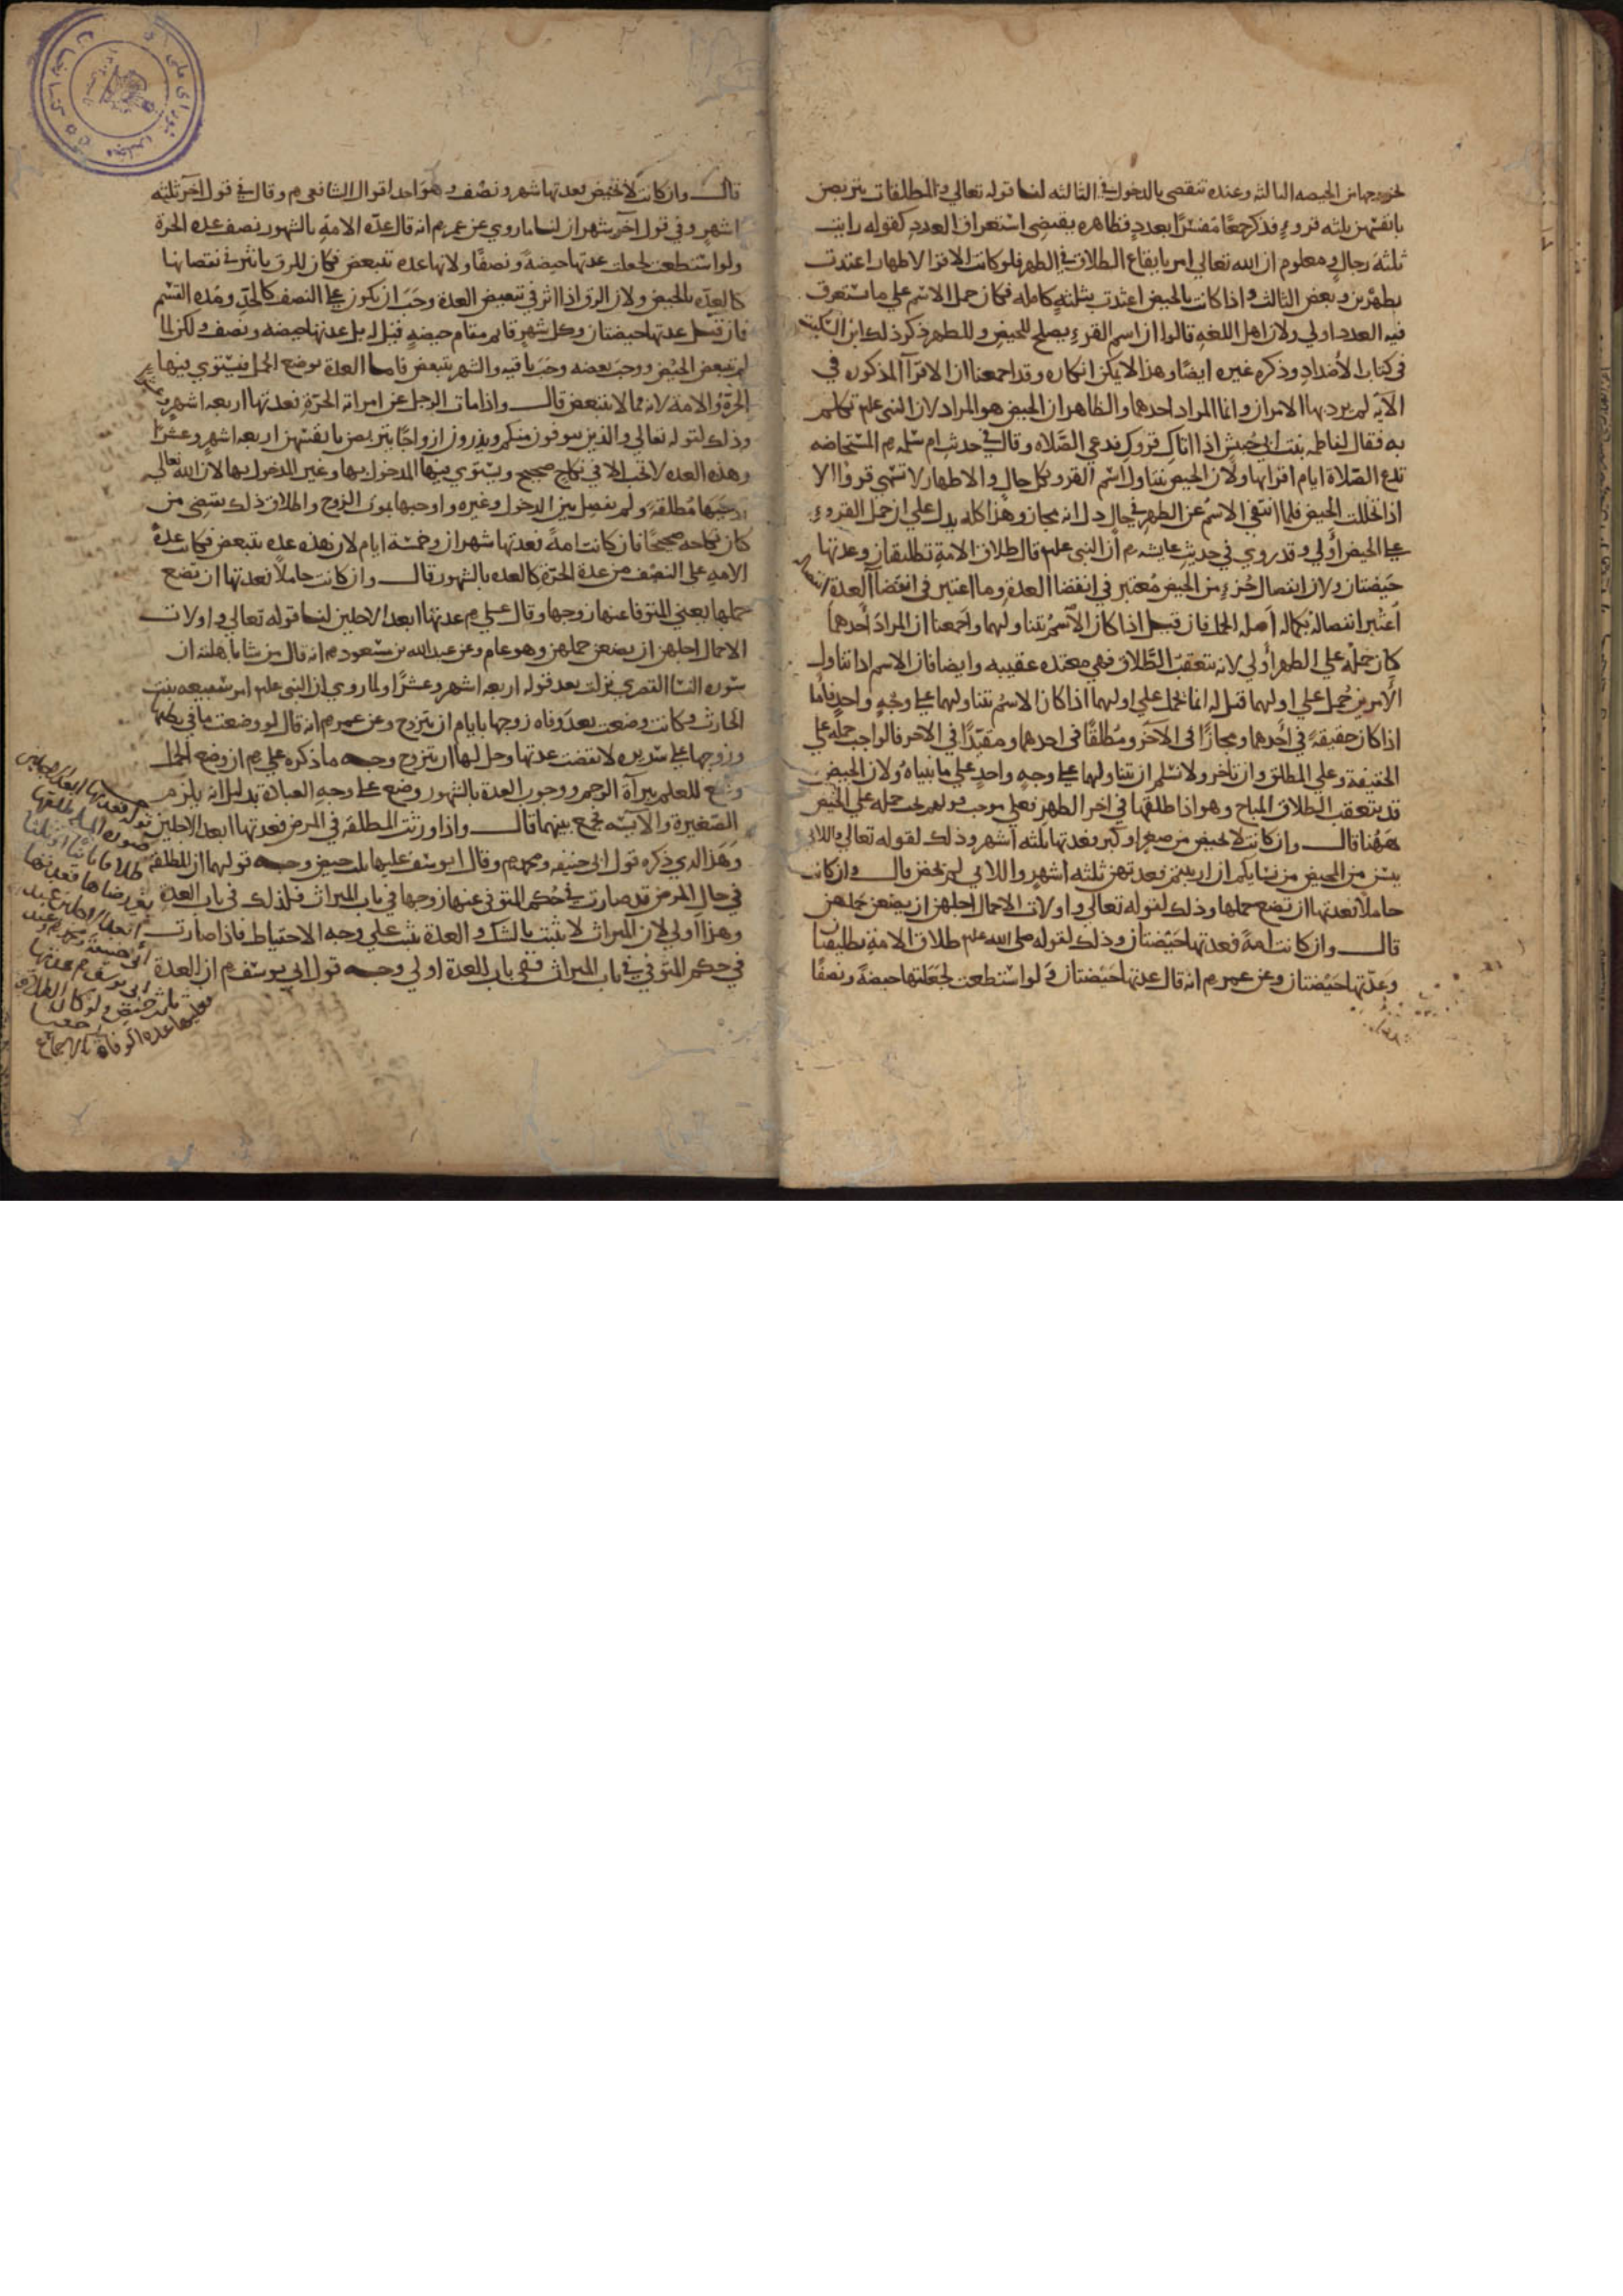 لخروجها من الحيضه الثالثه وعنده تنقضي بالدخول في الثالثه لنا قوله تعالي والمطلقات يتربصن
بانفسهن ثلثه قروء فذكر جمعًا مفسّرًا بعددٍ فظاهره يقتضي استغراق العدد كقوله رايت
ثلثه رجال ومعلوم ان الله تعالي امر بايقاع الطلاق في الطهر فلو كانت الاقرا الاطهار اعتدت
بطهرين وبعض الثالث واذا كانت بالحيض اعتدت بثلثةٍ كامله فكان حمل الاسم علي ما يستغرق
فيه العدد اولي ولان اهل اللغه قالوا ان اسم القرءِ يصلح للحيض وللطهر ذكر ذلك ابن السكيت
في كتاب الأضداد وذكره غيره ايضًا وهذا لا يمكن انكاره وقد اجمعنا ان الاقرآ المذكوره في
الآيه لم يرد بها الامران وانما المراد احدهما والظاهر ان الحيض هو المراد لان النبي علم تكلم
به فقال لفاطمه بنت ابي حبيش اذا اتاك قروك فدعي الصّلاه وقال في حديث ام سلمه رم المستحاضه
تدع الصّلاة ايام اقرائها ولان الحيض يتناوله اسم القرو بكل حال والاطهار لا تسمّي قروءًا الا
اذا تخللت الحيض فلما انتفي الاسم عن الطهر في حال دل انه مجاز وهذا كله يدل علي ان حمل القروءِ
علي الحيض أولي وقد روي في حديث عايشه رم أن النبي علم قال طلاق الامةِ تطليقتان وعدتها
حَيضتان ولان انفصال جُزءٍ من الحيض مُعتبر في انقضا العدة وما اعتبر في انقضآ العدة
اُعتبر انفصاله بكماله اَصله الحمل فان قيل اذا كان الاسمُ يتناولهما واَجمعنا ان المرادَ أحدهما
كان حملُه علي الطهر أولي لانه يتعقبُ الطَّلاق فهي معتده عقيبه وايضا فان الاسم اذا تناول
الأمرين حُمل علي اولهما قيل له انما يحمل علي اولهما اذا كان الاسم يتناولهما علي وجهٍ واحدٍ فأمّا
اذا كان حقيقةً في أحدهما ومجازًا في الآخر ومُطلقًا في احدهما ومقيّدًا في الاخر فالواجب حمله علي
الحقيقة وعلي المطلق وان تاخر ولا نسلم ان تناولهما علي وجهٍ واحدٍ علي ما بيناهُ ولان الحيض
قد يتعقب الطلاق المباح وهو اذا طلقها في اخر الطهر فعلي موجب قولهم يجب حمله علي الحيض
هَهُنا قال وان كانت لا تحيض من صغر او كبر فعدتها ثلثه اشهر وذلك لقوله تعالي واللائي
يئسن من المحيض من نسايكم ان ارتبتم فعدتهن ثلثه اشهر واللائي لم يحضن قال وان كانت
حاملًا فعدتها ان تضع حملها وذلك لقوله تعالي واولات الاحمال اجلهن ان يضعن حملهن
قال وان كانت امةً فعدتها حَيْضتان وذلك لقوله صلى الله علم طلاق الامة تطليقتان
وعدّتها حَيْضتان وعن عمر رم انه قال عدتها حَيْضتان ولو استطعت لجعلتها حيضةً ونصفًا
قال وان كانت لا تحيض فعدتها شهر ونصف وهو احد اقوال الشافعي رم وقال في قول آخر ثلثه
اشهرٍ وفي قول آخر شهران لنا ما روي عن عمر رم انه قال عدّه الامةِ بالشهور نصف عده الحرة
ولو استطعت لجعلت عدتها حيضةً ونصفًا ولانها عده تتبعض فكان للرق تاثير في نقصانها
كالعدّه بالحيض ولان الرق اذا اثر في تبعيض العدة وجبَ ان يكون علي النصف كالحدّ ومُده القسْم
فان قيل عدتها حيضتان وكل شهرٍ قايم مقام حيضةٍ قيل له بل عدتها حيضه ونصف ولكن لما
لم يتبعض الحيْض ووجبَ بعضه وجبَ باقيه والشهر يتبعض فاما العدة بوضع الحمل فيستوي فيها
الحُرّة والامة لانه مما لا يتبعض قال واذا مات الرجل عن امراته الحُرّةِ فعدتها اربعه اشهرٍ وعشر
وذلك لقوله تعالي والذين يتوفون منكم ويذرون ازواجًا يتربصن بانفسهن اربعه اشهرٍ وعشرًا
وهذه العده لا تجب الا في نكاحٍ صحيح ويستوي فيها المدخول بها وغير المدخول بها لان الله تعالى
اوجبَها مُطلقةً ولم يفصل بين الدخول وغيره واوجبها بموت الزوج واطلاق ذلك يقتضي من
كان نكاحه صحيحًا فان كانت امةً فعدتها شهران وخمسة ايام لان هذه عده تتبعض فكانت عدة
الامةِ علي النصْف من عدة الحرّةِ كالعده بالشهور قال وان كانت حاملًا فعدتها ان تضع
حملها يعني المتوفا عنها زوجها وقال علي رم عدتها ابعد الاجلين لنا قوله تعالي واولات
الاحمال اجلهن ان يضعن حملهن وهو عام وعن عبد الله بن مسعود رم انه قال من شا باهلته ان
سوره النسا القصري نزلت بعد قوله اربعه اشهر وعشرًا ولما روي ان النبي علم امر سُبيعه بنت
الحارث وكانت وضعت بعد وفاه زوجها بايام ان تتزوج وعن عمر رم انه قال لو وضعت ما في بطنها
وزوجها علي سريره لانقضت عدتها وحل لها ان تتزوج وجه ما ذكره علي رم ان وضع الحمل
وضع للعلم ببرآة الرحم ووجوب العدة بالشهور وضع علي وجهِ العبادة بدليل انه يلزم
الصّغيرة والآيسه فجمع بينهما قال واذا ورثت المطلقه في المرض فعدتها ابعد الاجلين
وهَذا الذي ذكره قول ابي حنيفه ومحمد رم وقال ابو يوسف عليها ثلث حيض وجه قولهما ان المطلقة
في حال المرض قد صارت في حُكم المتوفي عنها زوجها في باب الميراث فكذلك في باب العدةِ
وهذا اولي لان الميراث لا يثبت بالشك والعدة تثبت علي وجه الاحتياط فاذا صارت
في حكم المتوفي في باب الميراث ففي باب العدة اولي وجه قول ابي يوسف رم ان العدة
قوله فعدتها ابعد الاجلين
صوره المسله طلقها
طلاقا بائنا او ثلثا
بغير رضاها فعدتها
ابعد الاجلين عند
أبي حنيفة ومحمد وعند
ابي يوسف رم عدتها
ثلث حيض ولو كان الطلاق
رجعيا
فعليها عدة الوفاة بالاجماع